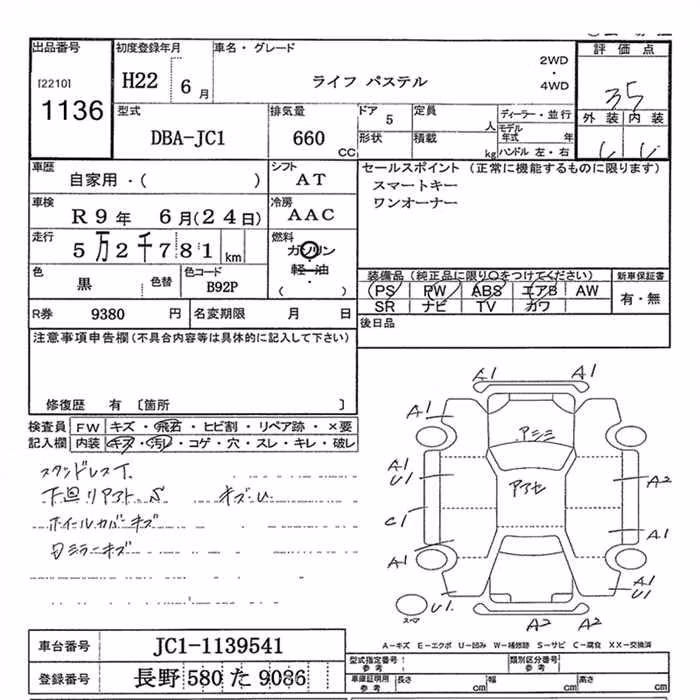 出品番号 初度登録年月 車名・グレード 評価点
[2210] H22 6月 ライフ パステル 2WD・4WD 3.5
1136
型式 排気量 ドア 定員 ディーラー・並行 外装 内装
DBA-JC1 660 CC 5 人 モデル年式 年
形状 積載 kg ハンドル 左・右
車歴 シフト セールスポイント(正常に機能するものに限ります)
自家用・( ) AT スマートキー
ワンオーナー
車検 冷房
R9年 6月(24日) AAC
走行 燃料
5万2千781 km ガソリン・軽油・( )
色 色替 色コード 装備品(純正品に限り○をつけてください) 新車保証書
黒 B92P PS PW ABS エアB AW 有・無
SR ナビ TV カワ
R券 9380 円 名変期限 月 日 後日品
注意事項申告欄(不具合内容等は具体的に記入して下さい)
修復歴 有 〔箇所 〕
検査員記入欄 FW キズ・飛石・ヒビ割・リペア跡・×要
内装 キズ・汚レ・コゲ・穴・スレ・キレ・破レ
下回リ
ホイールカバーキズ
A1 A1
A1 A1
A1
U1 A2
C1 A1
A1 A1
U1 U1
A2 A2
A−キズ E−エクボ U−凹み W−補修跡 S−サビ C−腐食 XX−交換済
車台番号 JC1-1139541 型式指定番号 参考 類別区分番号 参考
登録番号 長野 580 た 9086 車庫証明用 参考 長さ cm 幅 cm 高さ cm